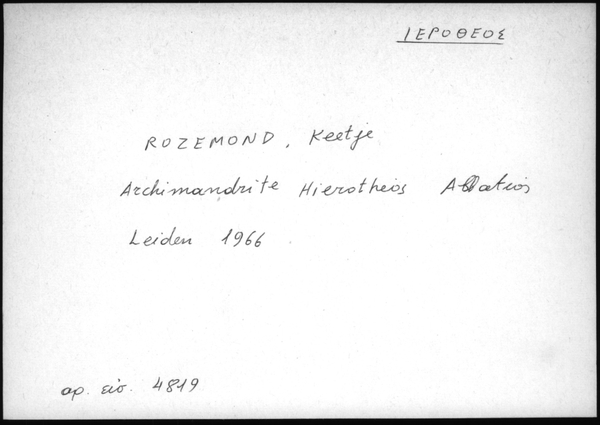 ΙΕΡΟΘΕΟΣ
ROZEMOND, Keetje
Archimandrite Hierotheos Abbatios
Leiden 1966
αρ. εισ. 4819